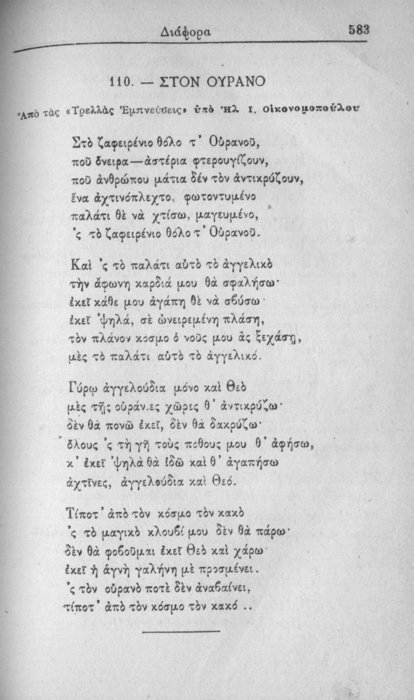 Διάφορα 583
110. — ΣΤΟΝ ΟΥΡΑΝΟ
Ἀπὸ τὰς «Τρελλὰς Ἐμπνεύσεις» ὑπὸ Ἠλ Ι. Οἰκονομοπούλου
Στὸ ζαφειρένιο θόλο τ' Οὐρανοῦ,
ποῦ ὄνειρα—ἀστέρια φτερουγίζουν,
ποῦ ἀνθρώπου μάτια δὲν τὸν ἀντικρύζουν,
ἕνα ἀχτινόπλεχτο, φωτοντυμένο
παλάτι θὲ νὰ χτίσω, μαγευμένο,
'ς τὸ ζαφειρένιο θόλο τ' Οὐρανοῦ.
Καὶ 'ς τὸ παλάτι αὐτὸ τὸ ἀγγελικὸ
τὴν ἄφωνη καρδιά μου θὰ σφαλήσω·
ἐκεῖ κάθε μου ἀγάπη θὲ νὰ σβύσω·
ἐκεῖ 'ψηλά, σὲ ὠνειρεμένη πλάση,
τὸν πλάνον κοσμο ὁ νοῦς μου ἂς ξεχάσῃ,
μὲς τὸ παλάτι αὐτὸ τὸ ἀγγελικό.
Γύρῳ ἀγγελούδια μόνο καὶ Θεὸ
μὲς τῆς οὐράν.ες χῶρες θ' ἀντικρύζω·
δὲν θὰ πονῶ ἐκεῖ, δὲν θὰ δακρύζω·
ὅλους 'ς τὴ γῆ τοὺς πόθους μου θ' ἀφήσω,
κ' ἐκεῖ 'ψηλὰ θὰ ἰδῶ καὶ θ' ἀγαπήσω
ἀχτῖνες, ἀγγελούδια καὶ Θεό.
Τίποτ' ἀπὸ τὸν κόσμο τὸν κακὸ
'ς τὸ μαγικὸ κλουβί μου δὲν θὰ πάρω·
δὲν θὰ φοβοῦμαι ἐκεῖ Θεὸ καὶ χάρω·
ἐκεῖ ἡ ἁγνὴ γαλήνη μὲ προσμένει.
'ς τὸν οὐρανὸ ποτὲ δὲν ἀναβαίνει,
τίποτ' ἀπὸ τὸν κόσμο τὸν κακό ..